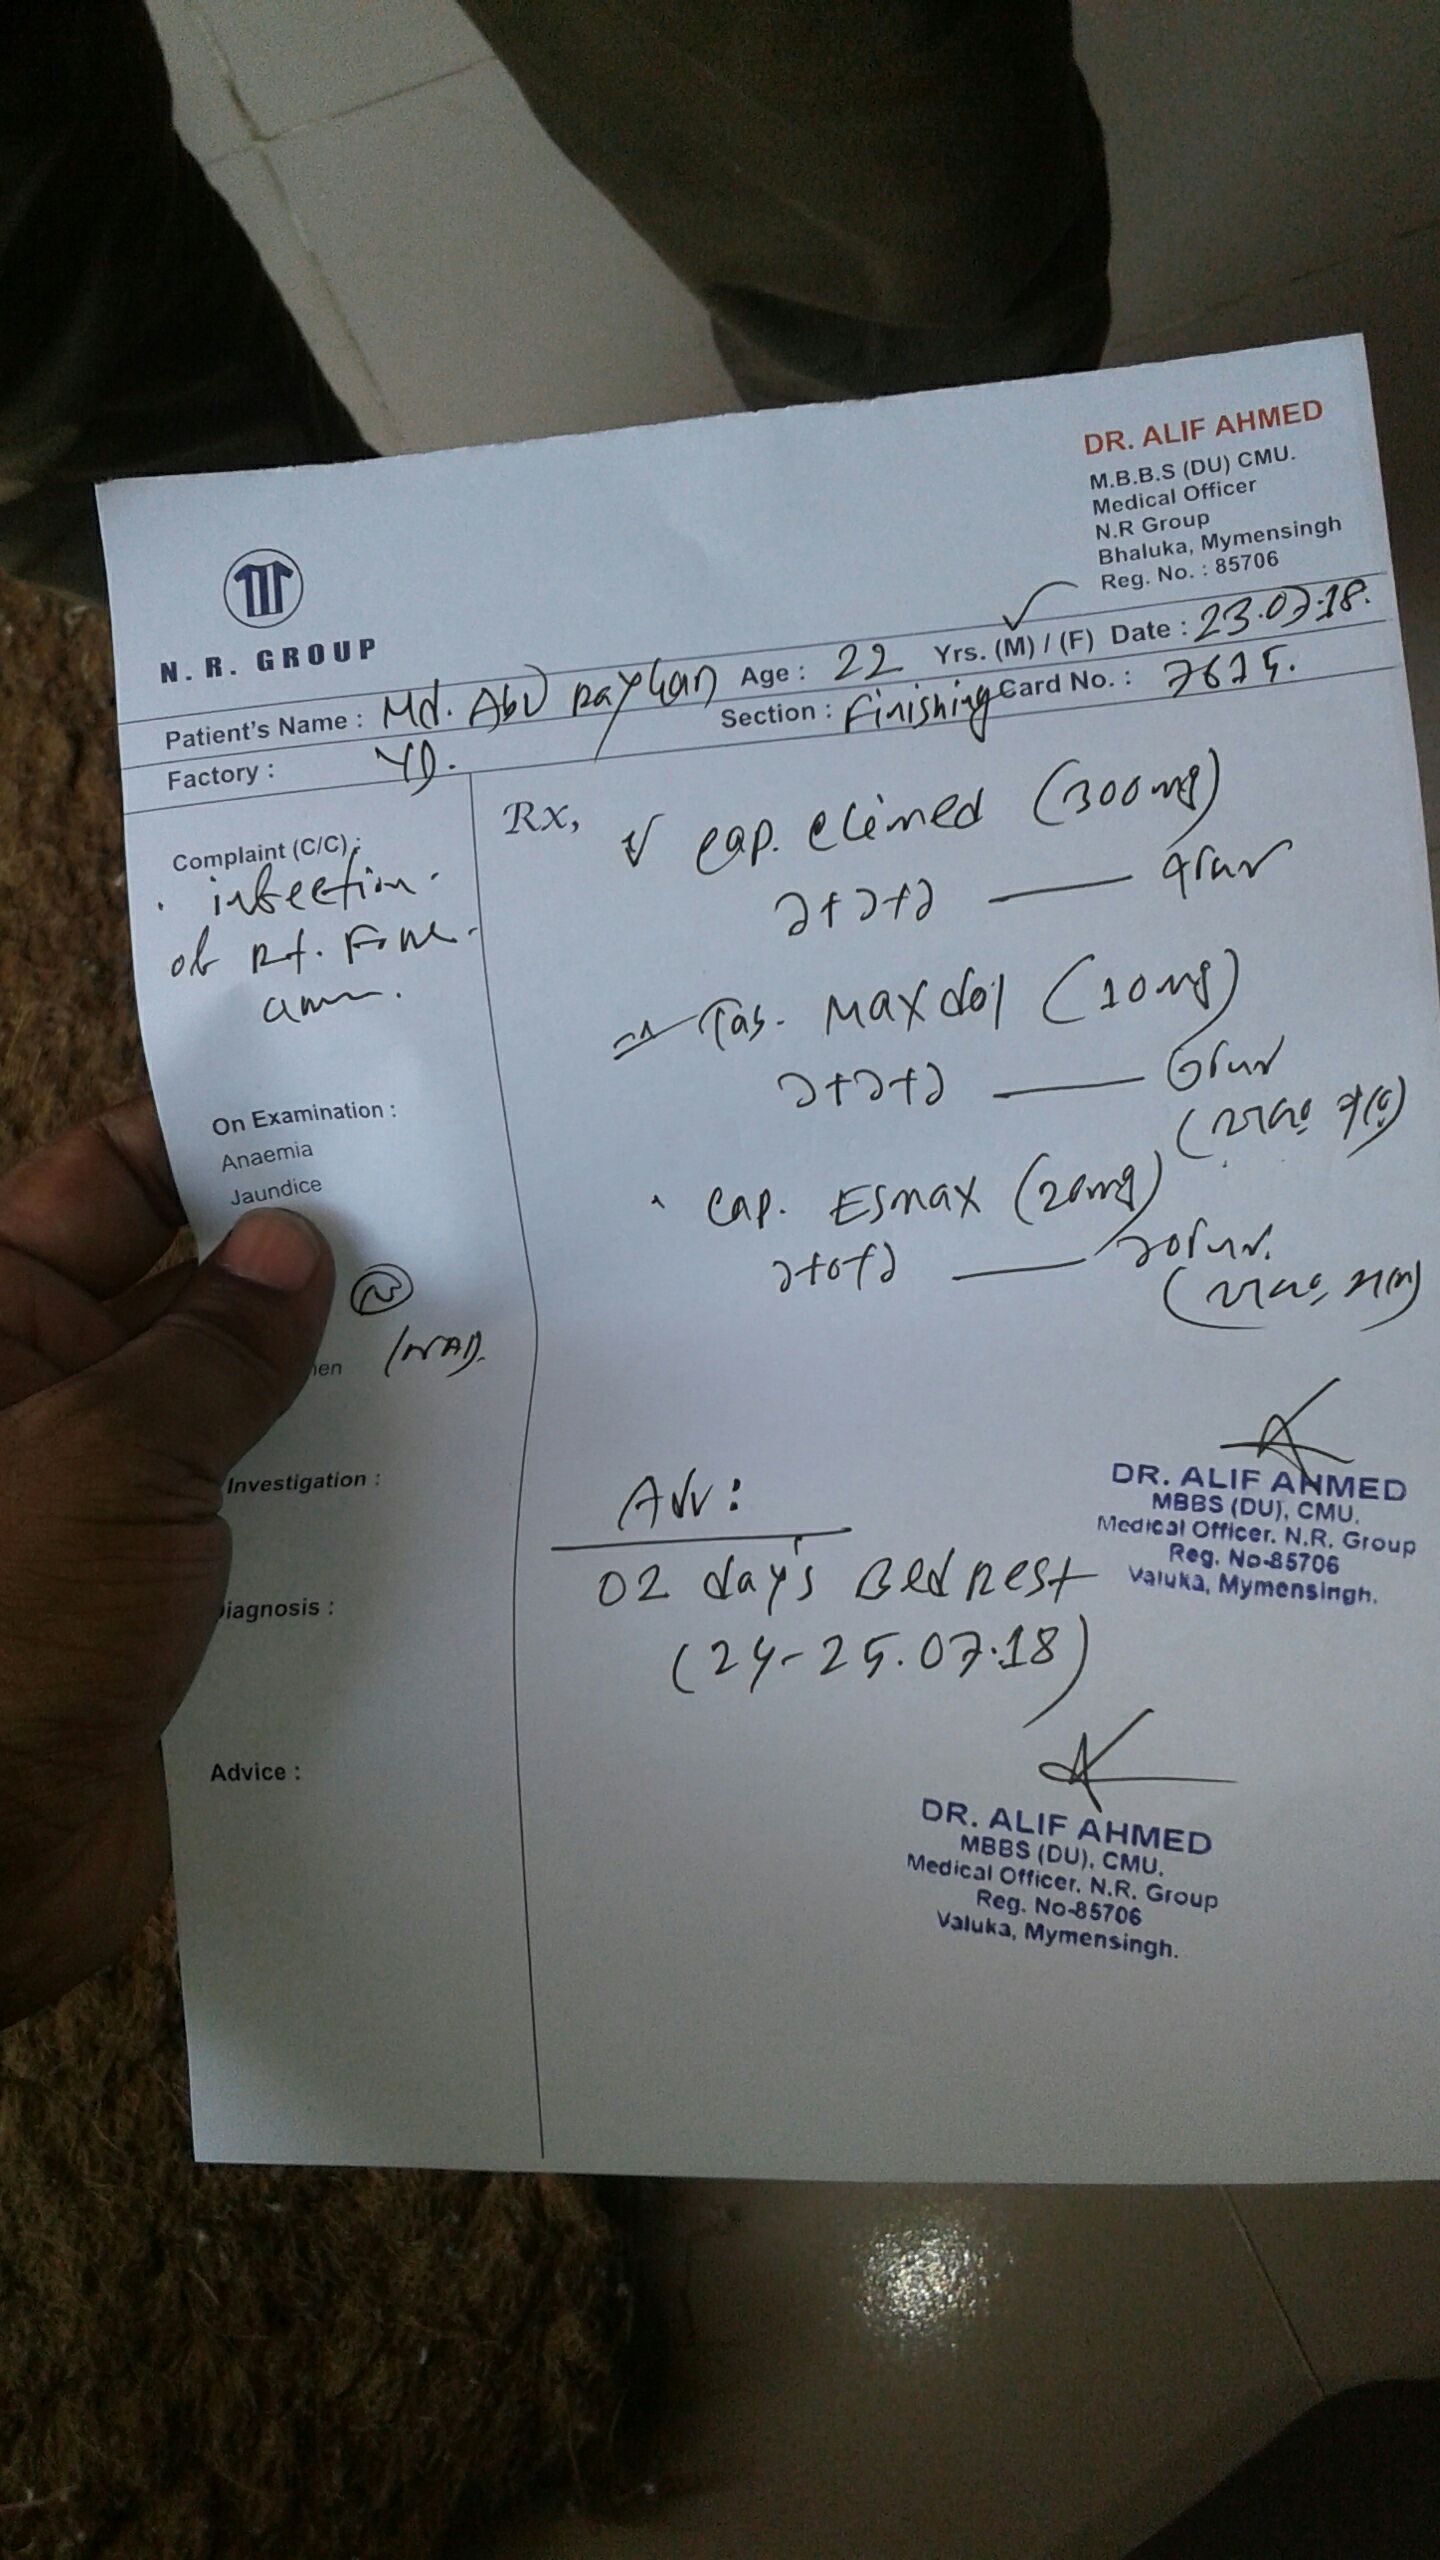 DR. ALIF AHMED
M.B.B.S (DU) CMU.
Medical Officer
N.R Group
Bhaluka, Mymensingh
Reg. No. : 85706
N. R. GROUP
Patient's Name : Md. Abu Rayhan Age : 22 Yrs. (M) / (F) Date : 23.07.18.
Factory : YD. Section : Finishing Card No. :
Complaint (C/C) :
infection
of Rt. Fore
arm.
On Examination :
Anaemia
Jaundice
/NAD.
Investigation :
iagnosis :
Advice :
Rx,
cap. climed (300mg)
১+১+১ —
Tab. Maxdol (10mg)
১+১+১ —
cap. Esmax (20mg)
১+০+১ —
DR. ALIF AHMED
MBBS (DU), CMU.
Medical Officer. N.R. Group
Reg. No-85706
Valuka, Mymensingh.
Adv :
02 day's Bed Rest
(24-25.07.18)
DR. ALIF AHMED
MBBS (DU), CMU.
Medical Officer. N.R. Group
Reg. No-85706
Valuka, Mymensingh.